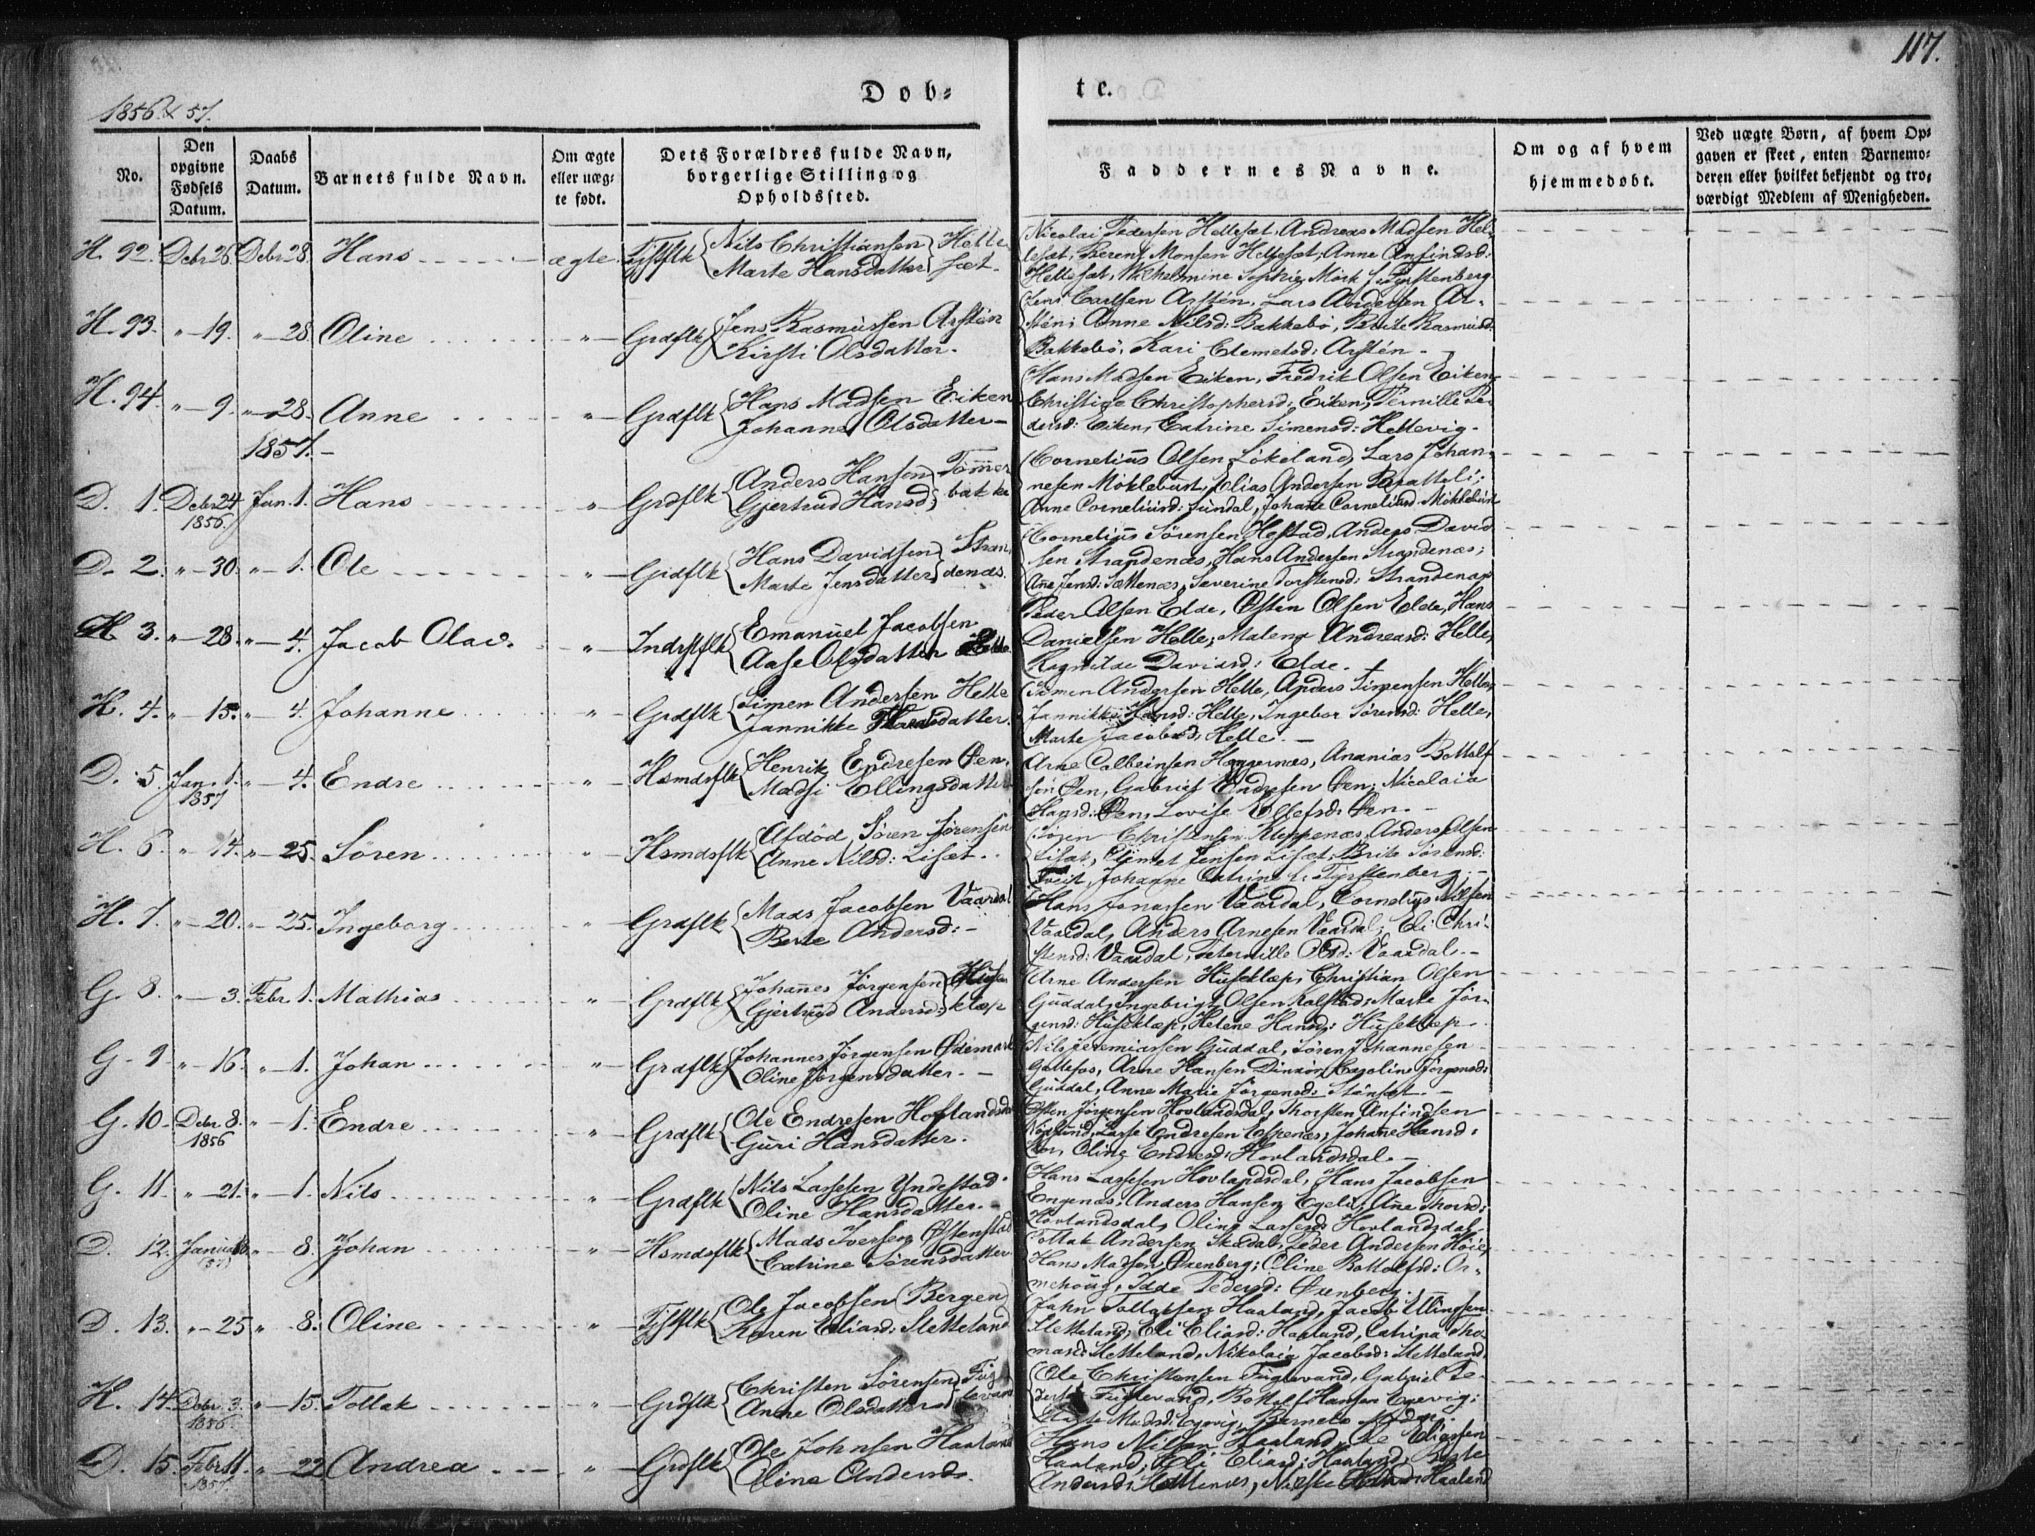 117.
1856 & 57.
Dob-
te.
No.
Den opgivne Fødsels Datum.
Daabs Datum.
Barnets fulde Navn.
Om ægte eller uægte født.
Dets Forældres fulde Navn, borgerlige Stilling og Opholdssted.
Faddernes Navne.
Om og af hvem hjemmedøbt.
Ved uægte Børn, af hvem Opgaven er skeet, enten Barnemoderen eller hvilket bekjendt og troværdigt Medlem af Menigheden.
H. 92. Debr 26. Debr 28. Hans ægte Nils Christiansen Marte Hansdatter Hellesæt.
Nicolai Pedersen Hellesæt, Andreas Madsen Hel-
lesæt, Berent Monsen Hellesæt, Anne Anfindsd:
Hellesæt, Wilhelmine Sophie Mörk f. Fyrstenberg
H. 93. " 19. " 28. Oline " Grdflk Jens Rasmussen Arstén Kirsti Olsdatter.
Jens Carlsen Arstén, Lars Andersen Ar-
stén; Anne Nilsd: Bakkebö, Brite Rasmusd:
Bakkebö, Kari Clemetsd: Arstén.
H. 94. " 9. " 28. Anne " Grdflk Hans Madsen Eiken Johanne Olsdatter
Hans Madsen Eiken, Fredrik Olsen Eiken,
Christine Christophersd: Eiken, Pernille Pe-
dersd: Eiken, Catrine Simensd: Hellevig.
1857.
D. 1. Debr 24. 1856. Jan. 1. Hans " Grdflk Anders Hansen Gjertrud Hansd: Tømmerbakke
Cornelius Olsen Løkeland, Lars Johan-
nesen Moklebust, Elias Andersen Bratteli;
Anne Corneliusd: Jundal, Johanne Corneliusd: Moklebust
D. 2. " 30. " 1. Ole " Grdflk Hans Davidsen Marte Jensdatter Strandenæs.
Cornelius Sørensen Hestad, Anders David-
sen Strandenæs, Hans Andersen Strandenæs;
Ane Jensd: Sættenæs, Severine Torstensd: Strandenæs
H. 3. " 28. " 4. Jacob Olai. " Indrstflk Emanuel Jacobsen Aase Olsdatter Helle
Peder Olsen Elde, Østen Olsen Elde, Hans
Danielsen Helle; Malene Andreasd: Helle,
Ragnilde Davidsd: Elde.
H. 4. " 15. " 4. Johanne " Grdflk Simen Andersen Helle Jannikke Hansdatter.
Simen Andersen Helle, Anders Simensen Helle,
Jannikke Hansd: Helle, Ingebor Sørensd: Helle,
Marte Jacobsd: Helle.
D. 5. Jan. 1. 1857 " 4. Endre " Hsmdsflk Henrik Endresen Øen, Madsi Ellingsdatter
Arne Colbeinsen Hongernæs, Ananias Bottolf-
sen Øen, Gabriel Endresen Øen; Nicolaia
Hansd: Øen, Lovise Ellefsd: Øen.
H. 6. " 14. " 25. Søren " Hsmdsflk Afdöd Søren Sørensen Anne Nilsd: Lisæt.
Christensen Kleppenæs, Anders Olsen
Lisæt, Clemet Jensen Lisæt, Brite Sørensd:
Tveit, Johanne Catrine f: Fyrstenberg.
H. 7. " 20. " 25. Ingeborg " Grdflk Mads Jacobsen Vaardal Berte Andersd:
Hans Jonassen Vaardal, Cornelius Nilsen
Vaardal, Anders Arnesen Vaardal; Eli Chri-
stensd: Vaardal, Peternille Olsd: Vaardal.
G. 8. " 3. Febr 1. Mathias " Grdflk Johanes Jørgensen Gjertrud Andersd: Huseklep
Arne Andersen Huseklep, Christian Olsen
Guddal, Ingebrigt Olsen Kalstad; Marte Jør-
gensd: Huseklep, Helene Hansd: Huseklep
G. 9. " 16. " 1. Johan " Grdflk Johannes Jørgensen Ødemark Oline Jørgensdatter.
Nils Jeremiassen Guddal, Søren Johannesen
Arne Hansen Caroline Jørgensd:
Guddal, Anne Marie Jørgensd:
G. 10. Debr 8. 1856 " 1. Endre " Grdflk Ole Endresen Hoflandsdal Guri Hansdatter.
Østen Jørgensen Hovlandsdal, Thorsten Anfindsen
Lasse Endresen Espenæs; Johane Hansd:
Oline Endresd: Hovlandsdal.
G. 11. " 21. " 1. Nils " Grdflk Nils Lassesen Yndestad. Oline Hansdatter.
Hans Lassesen Hovlandsdal, Hans Jacobsen
Engenæs, Anders Hansen Ane Thorsd:
Hovlandsdal, Oline Lassesd: Hovlandsdal
D. 12. " 8. Johan " Hsmdsflk Mads Iversen Østenstad Catrine Sørensdatter
Tollak Andersen Peder Andersen Høie,
Hans Madsen Øxenberg; Oline Bottolfsd: Or-
mehoug, Idde Pedersd: Øxenberg.
D. 13. " 25 " 8. Oline " Ole Jacobsen (Bergen) Karen Eliasd: Sletteland
Jahn Tollagsen Haaland, Jacob Ellingsen
Sletteland, Eli Eliasd: Haaland, Catrina Tho-
masd: Sletteland, Nikolaia Jacobsd: Sletteland.
H. 14. Debr. 3. 1856. " 15. Tollak " Grdflk Christen Sørensen Anne Olsdatter Fuglevand
Ole Christensen Fuglevand, Gabriel Pe-
dersen Fuglevand, Bottolf Hansen Eyevig;
Madsd: Eyevig, Barnets Moder.
D. 15. Febr 11. 1857. " 22 Andrea " Grdflk Ole Johnsen Haaland Oline Andersd:
Hans Nilsen Haaland, Ole Eliassen
Haaland, Eli Eliasd: Haaland, Berte
Andersd: Hattenes, Haaland